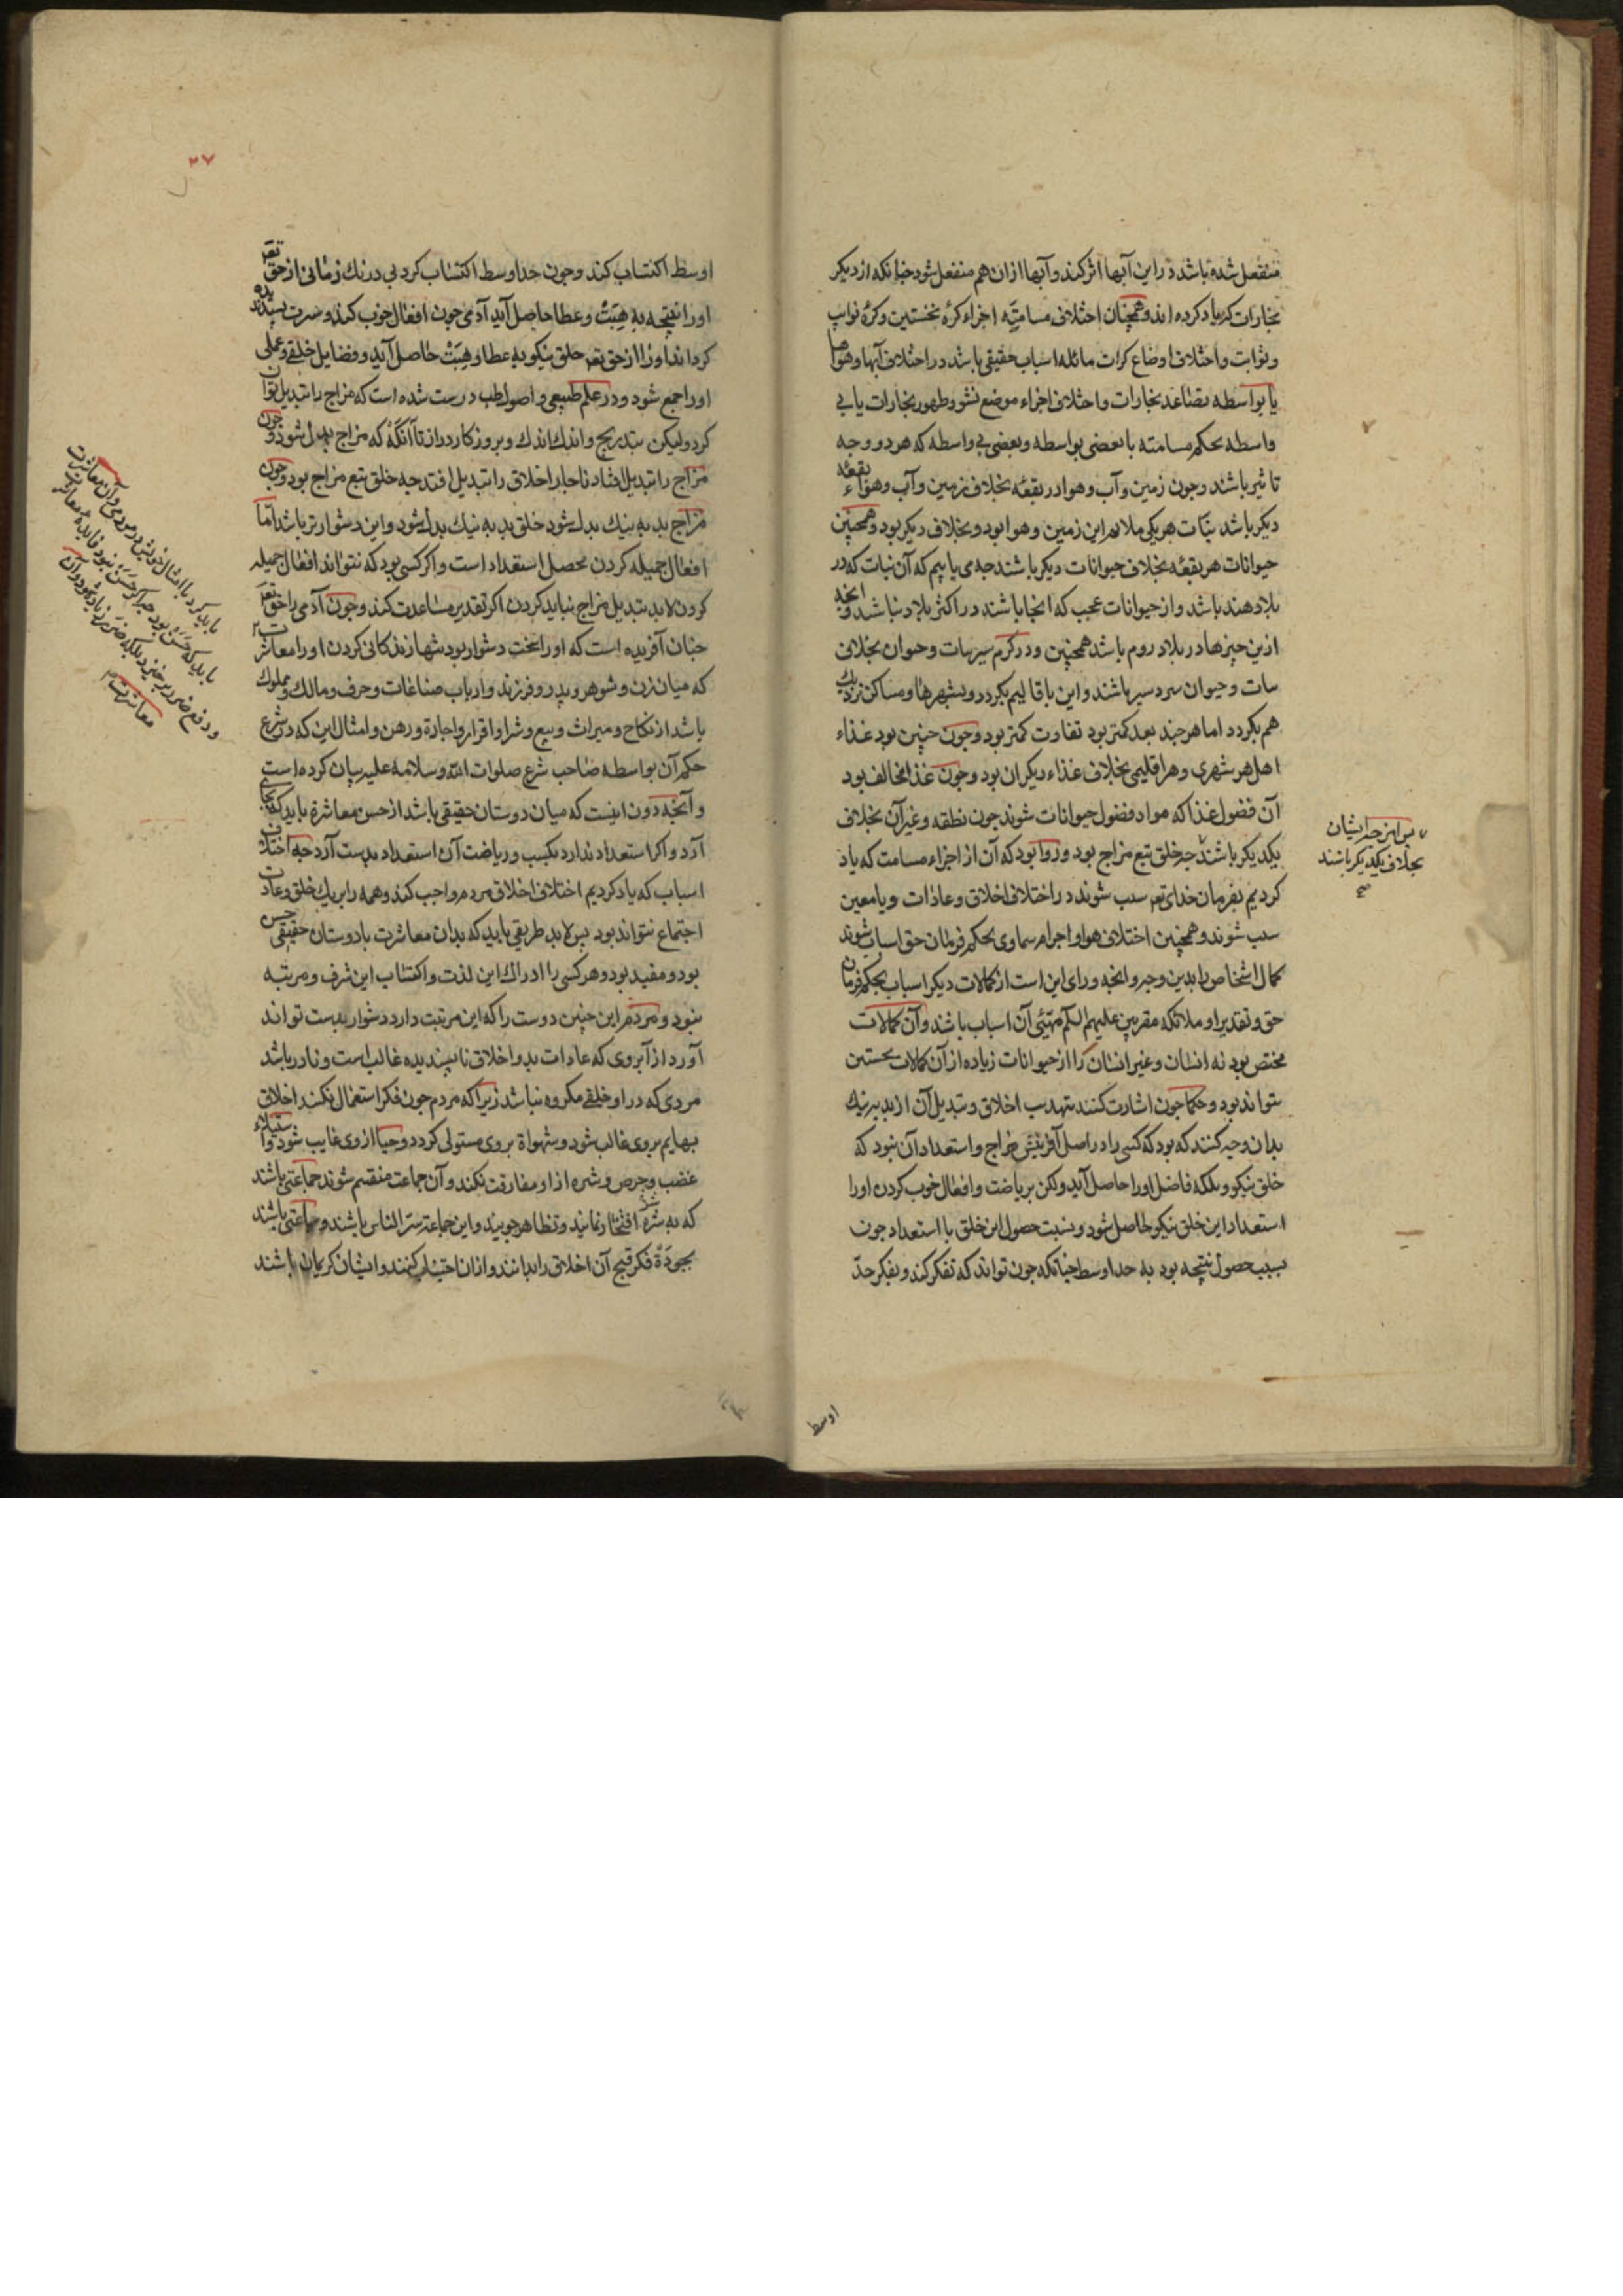 منفعل شده باشد در این آبها اثر کند و آبها ازان هم منفعل شود چنانکه از دیگر
بخارات که یاد کرده اند و همچنان اختلاف مسامته اجزاء کره نخستین و کره ثوابت
و ثوابت و اختلاف اوضاع کرات مائله اسباب حقیقی باشد در اختلاف آبها و هواها
یا بواسطه تصاعد بخارات و اختلاف اجزاء موضع نشو و ظهور بخارات یا بی
واسطه بحکم مسامته یا بعضی بواسطه و بعضی بی واسطه که هر دو وجه
تاثیر باشند و جون زمین و آب و هوا در بقعه بخلاف زمین و آب و هواء بقعه
دیگر باشد نبات هر یکی ملائم این زمین و هوا بود و بخلاف دیگر بود و همچنین
حیوانات هر بقعه بخلاف حیوانات دیگر باشند جه می یابیم که آن نبات که در
بلاد هند باشد و از حیوانات عجب که آنجا باشند در اکثر بلاد نباشد و آنچه
ازین چیزها در بلاد روم باشد همچنین و در گرم سیر نبات و حیوان بخلاف
نبات و حیوان سردسیر باشند و این باقالیم بگردد و بشهرها و مساکن نزدیک
هم بگردد اما هر چند بعد کمتر بود تفاوت کمتر بود و جون چنین بود غذاء
اهل هر شهری و هر اقلیمی بخلاف غذاء دیگران بود و جون غذا مخالف بود
آن فضول غذا که مواد فضول حیوانات شوند جون نطفه و غیر آن بخلاف
یکدیگر باشند جه خلق تبع مزاج بود و روا بود که آن از اجزاء مسامت که یاد
کردیم بفرمان خدای تعه سبب شوند در اختلاف اخلاق و عادات و یا معین
سبب شوند و همچنین اختلاف هوا و اجرام سماوی بحکم فرمان حق اسباب شوند
کمال اشخاص را بدین وجه و آنچه ورای این است از کمالات دیگر اسباب بحکم فرمان
حق و تقدیر او ملائکه مقربین علیهم السلم مهیئی آن اسباب باشند و آن کمالات
مختص بود نه انسان و غیر انسان را از حیوانات زیاده از آن کمالات نخستین
نتواند بود و حکما جون اشارت کنند بتهذیب اخلاق و تبدیل آن از بد به نیک
بدان وجه کنند که بود که کسی را در اصل آفرینش مزاج و استعداد آن نبود که
خلق نیکو و ملکه فاضل او را حاصل آید ولکن بریاضت و افعال خوب کردن او را
استعداد این خلق نیکو حاصل شود و نسبت حصول این خلق با استعداد جون
سبب حصول نتیجه بود به حد اوسط چنانکه جون تواند که تفکر کند و بفکر حد
پس این جه ایشان
بخلاف یکدیگر باشند
صح
اوسط
۲۷
اوسط اکتساب کند و جون حد اوسط اکتساب کرد بی درنک زمانی از حق تعه
او را نتیجه به هبت و عطا حاصل آید آدمی جون افعال خوب کند و سیرت پسندیده
کرداند او را از حق تعه خلق نیکو به عطا و هبت حاصل آید و فضایل خلقی و عملی
او را جمع شود و در علم طبیعی و اصول طب درست شده است که مزاج را تبدیل توان
کرد ولیکن بتدریج و اندک اندک و بروزکار دراز تا آنکه که مزاج بدل شود و جون
مزاج را تبدیل افتاد ناچار اخلاق را تبدیل افتد جه خلق تبع مزاج بود و جون
مزاج بد به نیک بدل شود خلق بد به نیک بدل شود و این دشوارتر باشد اما
افعال جمیله کردن محصل استعداد است و اکر کسی بود که نتواند افعال جمیله
کردن لابد تبدیل مزاج نباید کردن اکر تقدیر مساعدت کند و جون آدمی را حق تعه
چنان آفریده است که او را سخت دشوار بود تنها زندکانی کردن او را معاشرت
که میان زن و شوهر و پدر و فرزند و ارباب صناعات و حرف و مالک و مملوک
باشد از نکاح و میراث و بیع و شرا و اقرار و اجازه و رهن و امثال این که در شرع
حکم آن بواسطه صاحب شرع صلوات الله و سلامه علیه بیان کرده است
و آنچه دون اینست که میان دوستان حقیقی باشد از حسن معاشرة باید که بجای
آرد و اکر استعداد ندارد بکسب و ریاضت آن استعداد بدست آرد جه اختلاف
اسباب که یاد کردیم اختلاف اخلاق مردم واجب کند و همه را بر یک خلق و عادت
اجتماع نتواند بود پس لابد طریقی باید که بدان معاشرت با دوستان حقیقی حسن
بود و مفید بود و هر کسی را ادراک این لذت و اکتساب این شرف و مرتبه
نبود و مردم این چنین دوست را که این مرتبت دارد دشوار بدست تواند
آورد از آبروی که عادات بد و اخلاق ناپسندیده غالب است و نادر باشد
مردی که در او خلقی مکروه نباشد زیرا که مردم جون فکر استعمال نکند اخلاق
بهایم بروی غالب شود و شهواة بروی مستولی کردد و حیا ازوی غایب شود و استیلاء
غضب و حرص و شره ازو مفارقت نکند و آن جماعت منقسم شوند جماعتی باشند
که به شره افتخار نمایند و تظاهر جویند و این جماعت شر الناس باشند و جماعتی باشند
بجودة فکر قبح آن اخلاق را بدانند و ازان اجتناب کنند و ایشان کریمان باشند
باید کرد با امثال خویش در مردمی و آن معاشرت
باید که حسن بود جه اکر حسن نبود فایده معاشرت
و دفع ضرر بر نخیزد بلکه ضرر زیادت شود و از آن
معاشرت